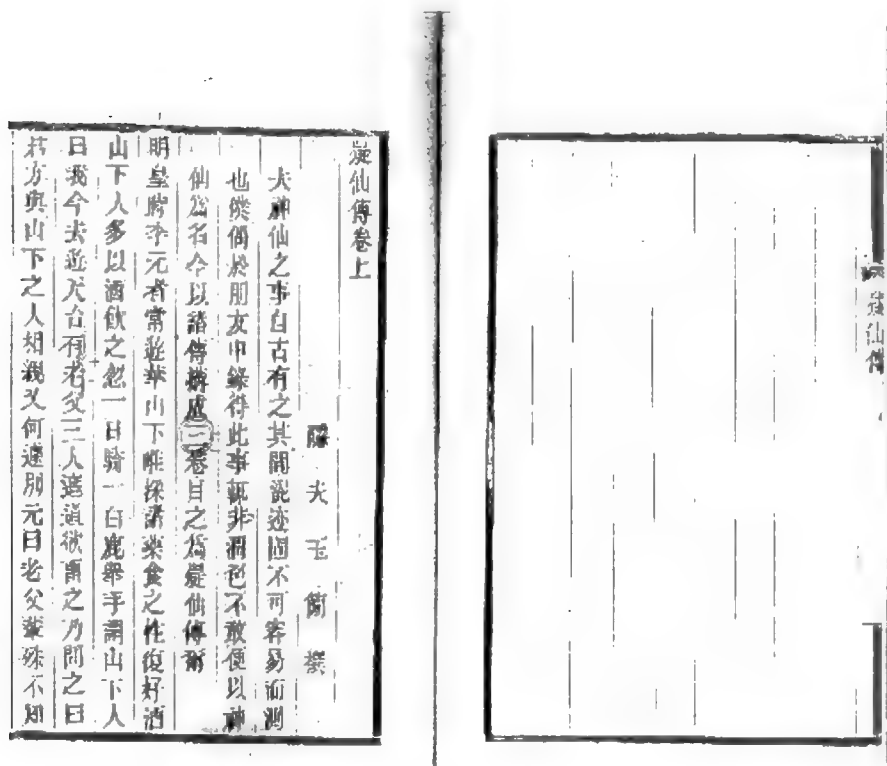 疑仙傳
疑仙傳卷上
隱夫玉簡撰
夫神仙之事自古有之其間混迹固不可容易而測
也僕偶於朋友中錄得此事輒非潤色不敢便以神
仙爲名今以諸傳構成三卷目之爲疑仙傳爾
明皇時李元者常遊華山下唯採諸藥食之性復好酒
山下人多以酒飲之忽一日騎一白鹿舉手謂山下人
曰我今去遊天台有老父三人遮道欲留之乃問之曰
君方與山下之人相親又何遽別元曰老父輩殊不知